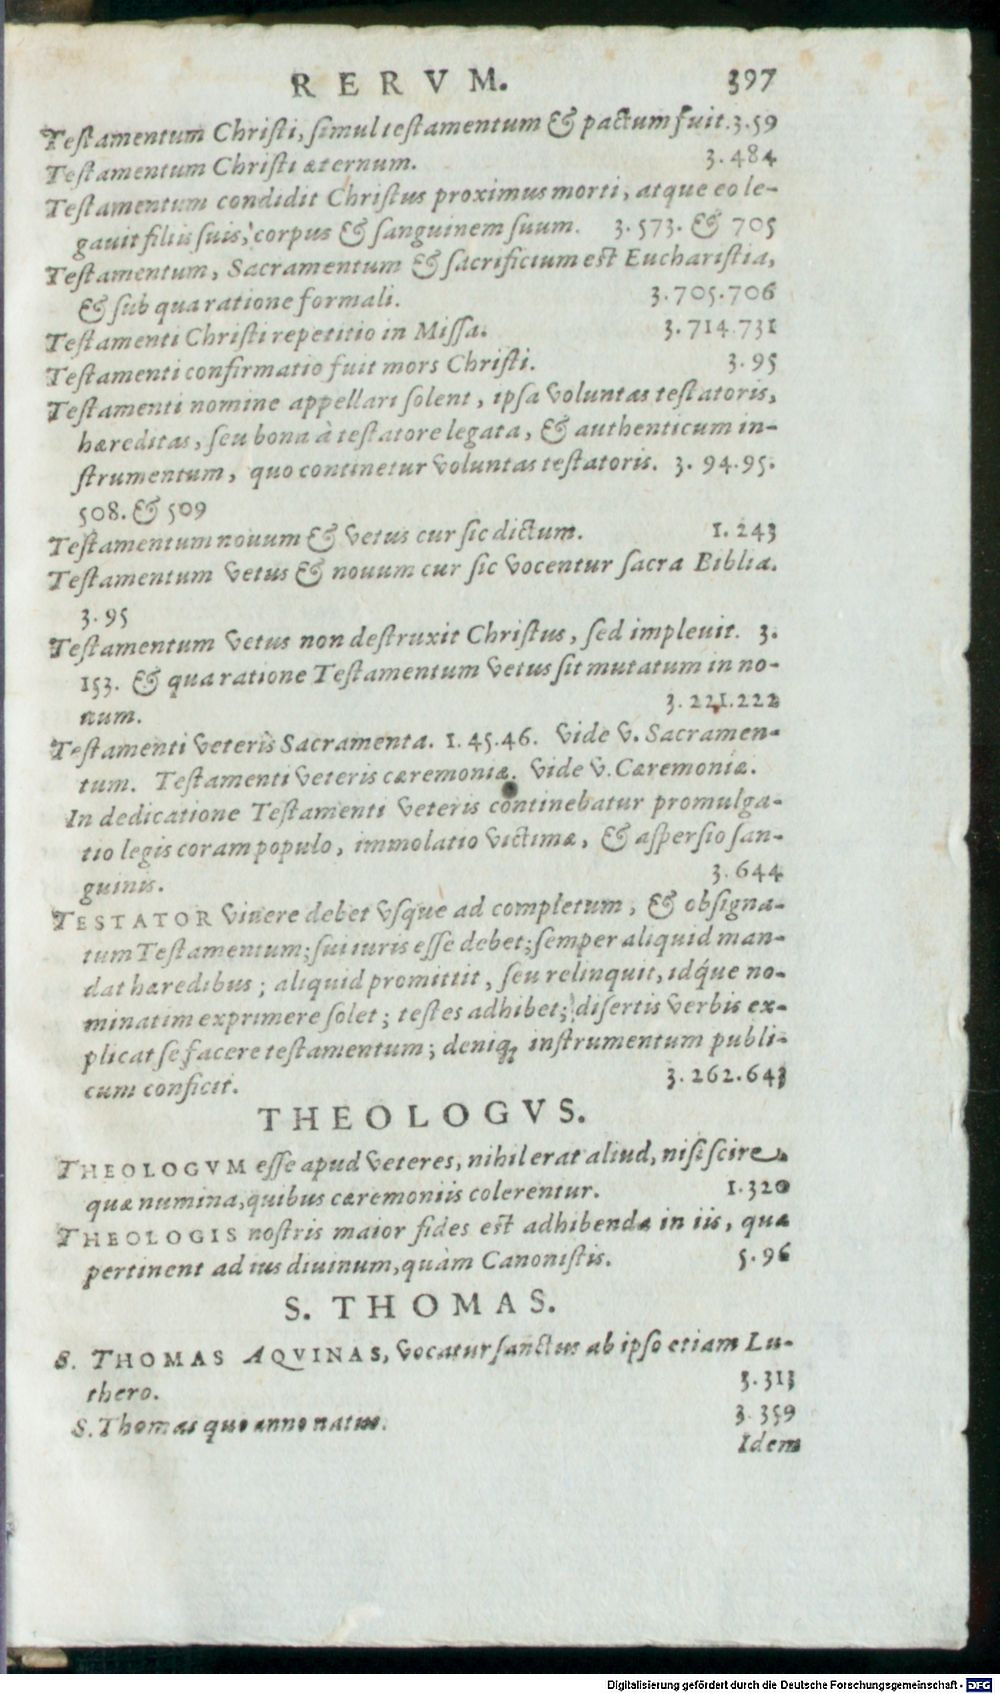 RERVM. 397
Testamentum Christi, simul testamentum & pactum fuit. 3.59
Testamentum Christi æternum. 3.484
Testamentum condidit Christus proximus morti, atque eo le-
gauit filiis suis, corpus & sanguinem suum. 3.573. & 705
Testamentum, Sacramentum & sacrificium est Eucharistia,
& sub qua ratione formali. 3.705.706
Testamenti Christi repetitio in Missa. 3.714.731
Testamenti confirmatio fuit mors Christi. 3.95
Testamenti nomine appellari solent, ipsa voluntas testatoris,
hæreditas, seu bona à testatore legata, & authenticum in-
strumentum, quo continetur voluntas testatoris. 3. 94.95.
508. & 509
Testamentum nouum & vetus cur sic dictum. 1.243
Testamentum vetus & nouum cur sic vocentur sacra Biblia.
3.95
Testamentum vetus non destruxit Christus, sed impleuit. 3.
153. & qua ratione Testamentum vetus sit mutatum in no-
uum. 3.221.222
Testamenti veteris Sacramenta. 1.45.46. vide v. Sacramen-
tum. Testamenti veteris cæremoniæ. vide v. Cæremoniæ.
In dedicatione Testamenti veteris continebatur promulga-
tio legis coram populo, immolatio victimæ, & aspersio san-
guinis. 3.644
TESTATOR viuere debet vsque ad completum, & obsigna-
tum Testamentum; sui iuris esse debet; semper aliquid man-
dat hæredibus; aliquid promittit, seu relinquit, idq́ue no-
minatim exprimere solet; testes adhibet; disertis verbis ex-
plicat se facere testamentum; deniq; instrumentum publi-
cum conficit. 3.262.643
THEOLOGVS.
THEOLOGVM esse apud veteres, nihil erat aliud, nisi scire
quæ numina, quibus cæremoniis colerentur. 1.320
THEOLOGIS nostris maior fides est adhibenda in iis, quæ
pertinent ad ius diuinum, quàm Canonistis. 5.96
S. THOMAS.
S. THOMAS AQVINAS, vocatur sanctus ab ipso etiam Lu-
thero. 3.313
S. Thomas quo anno natus. 3.359
Idem
Digitalisierung gefördert durch die Deutsche Forschungsgemeinschaft - DFG